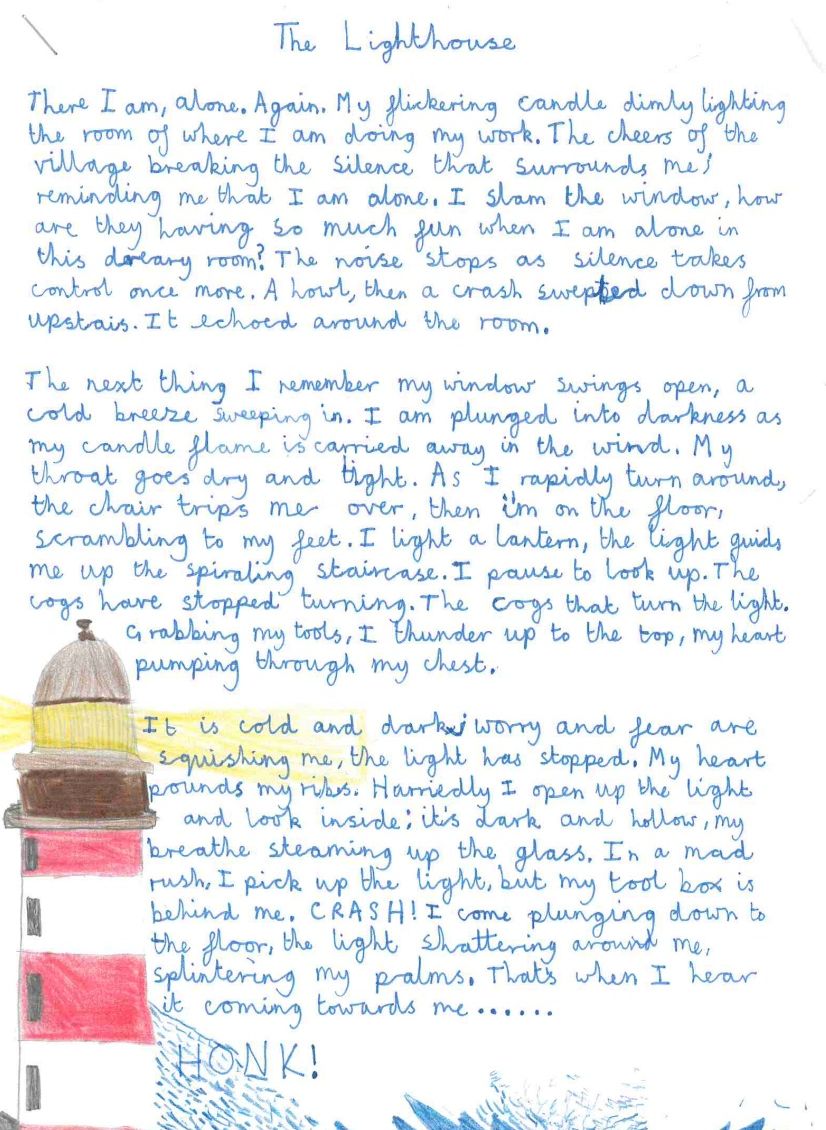 The Lighthouse
There I am, alone. Again. My flickering candle dimly lighting
the room of where I am doing my work. The cheers of the
village breaking the silence that surrounds me;
reminding me that I am alone. I slam the window, how
are they having so much fun when I am alone in
this dreary room? The noise stops as silence takes
control once more. A howl, then a crash swepted down from
upstais. It echoed around the room.
The next thing I remember my window swings open, a
cold breeze sweeping in. I am plunged into darkness as
my candle flame is carried away in the wind. My
throat goes dry and tight. As I rapidly turn around,
the chair trips me over, then i'm on the floor,
scrambling to my feet. I light a lantern, the light guids
me up the spiraling staircase. I pause to look up. The
cogs have stopped turning. The cogs that turn the light.
Grabbing my tools, I thunder up to the top, my heart
pumping through my chest.
It is cold and dark; worry and fear are
squishing me, the light has stopped. My heart
pounds my ribs. Harriedly I open up the light
and look inside; it's dark and hollow, my
breathe steaming up the glass. In a mad
rush, I pick up the light, but my tool box is
behind me. CRASH! I come plunging down to
the floor, the light shattering around me,
splintering my palms. That's when I hear
it coming towards me ......
HONK!